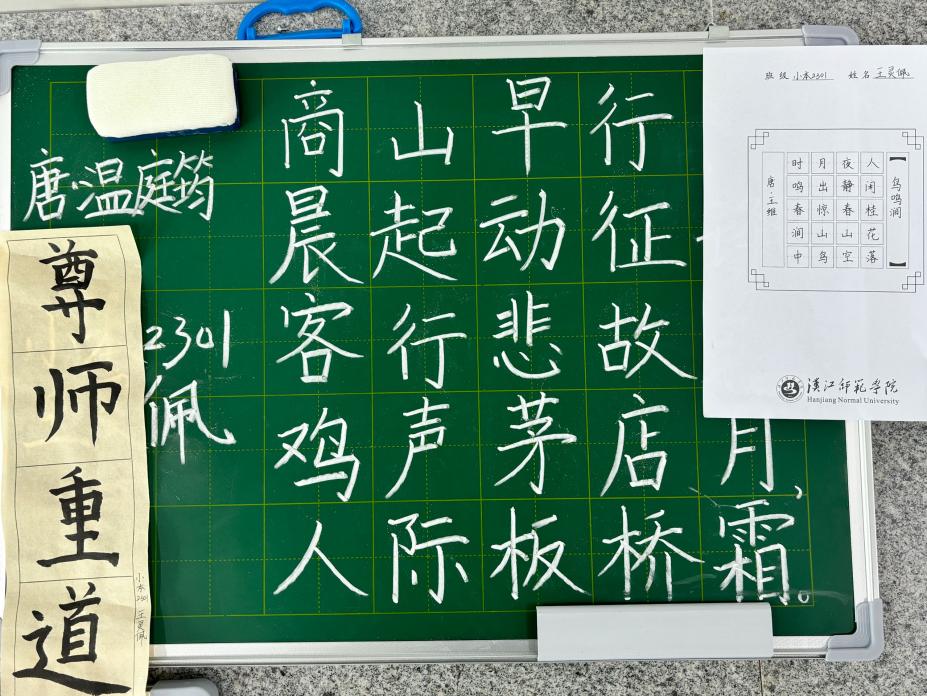 商山早行
唐·温庭筠
晨起动征
客行悲故
鸡声茅店月,
人际板桥霜。
2301
佩
尊师重道
小本2301 王灵佩
班级 小本2301 姓名 王灵佩
【鸟鸣涧】
人闲桂花落
夜静春山空
月出惊山鸟
时鸣春涧中
唐·王维
汉江师范学院
Hanjiang Normal University